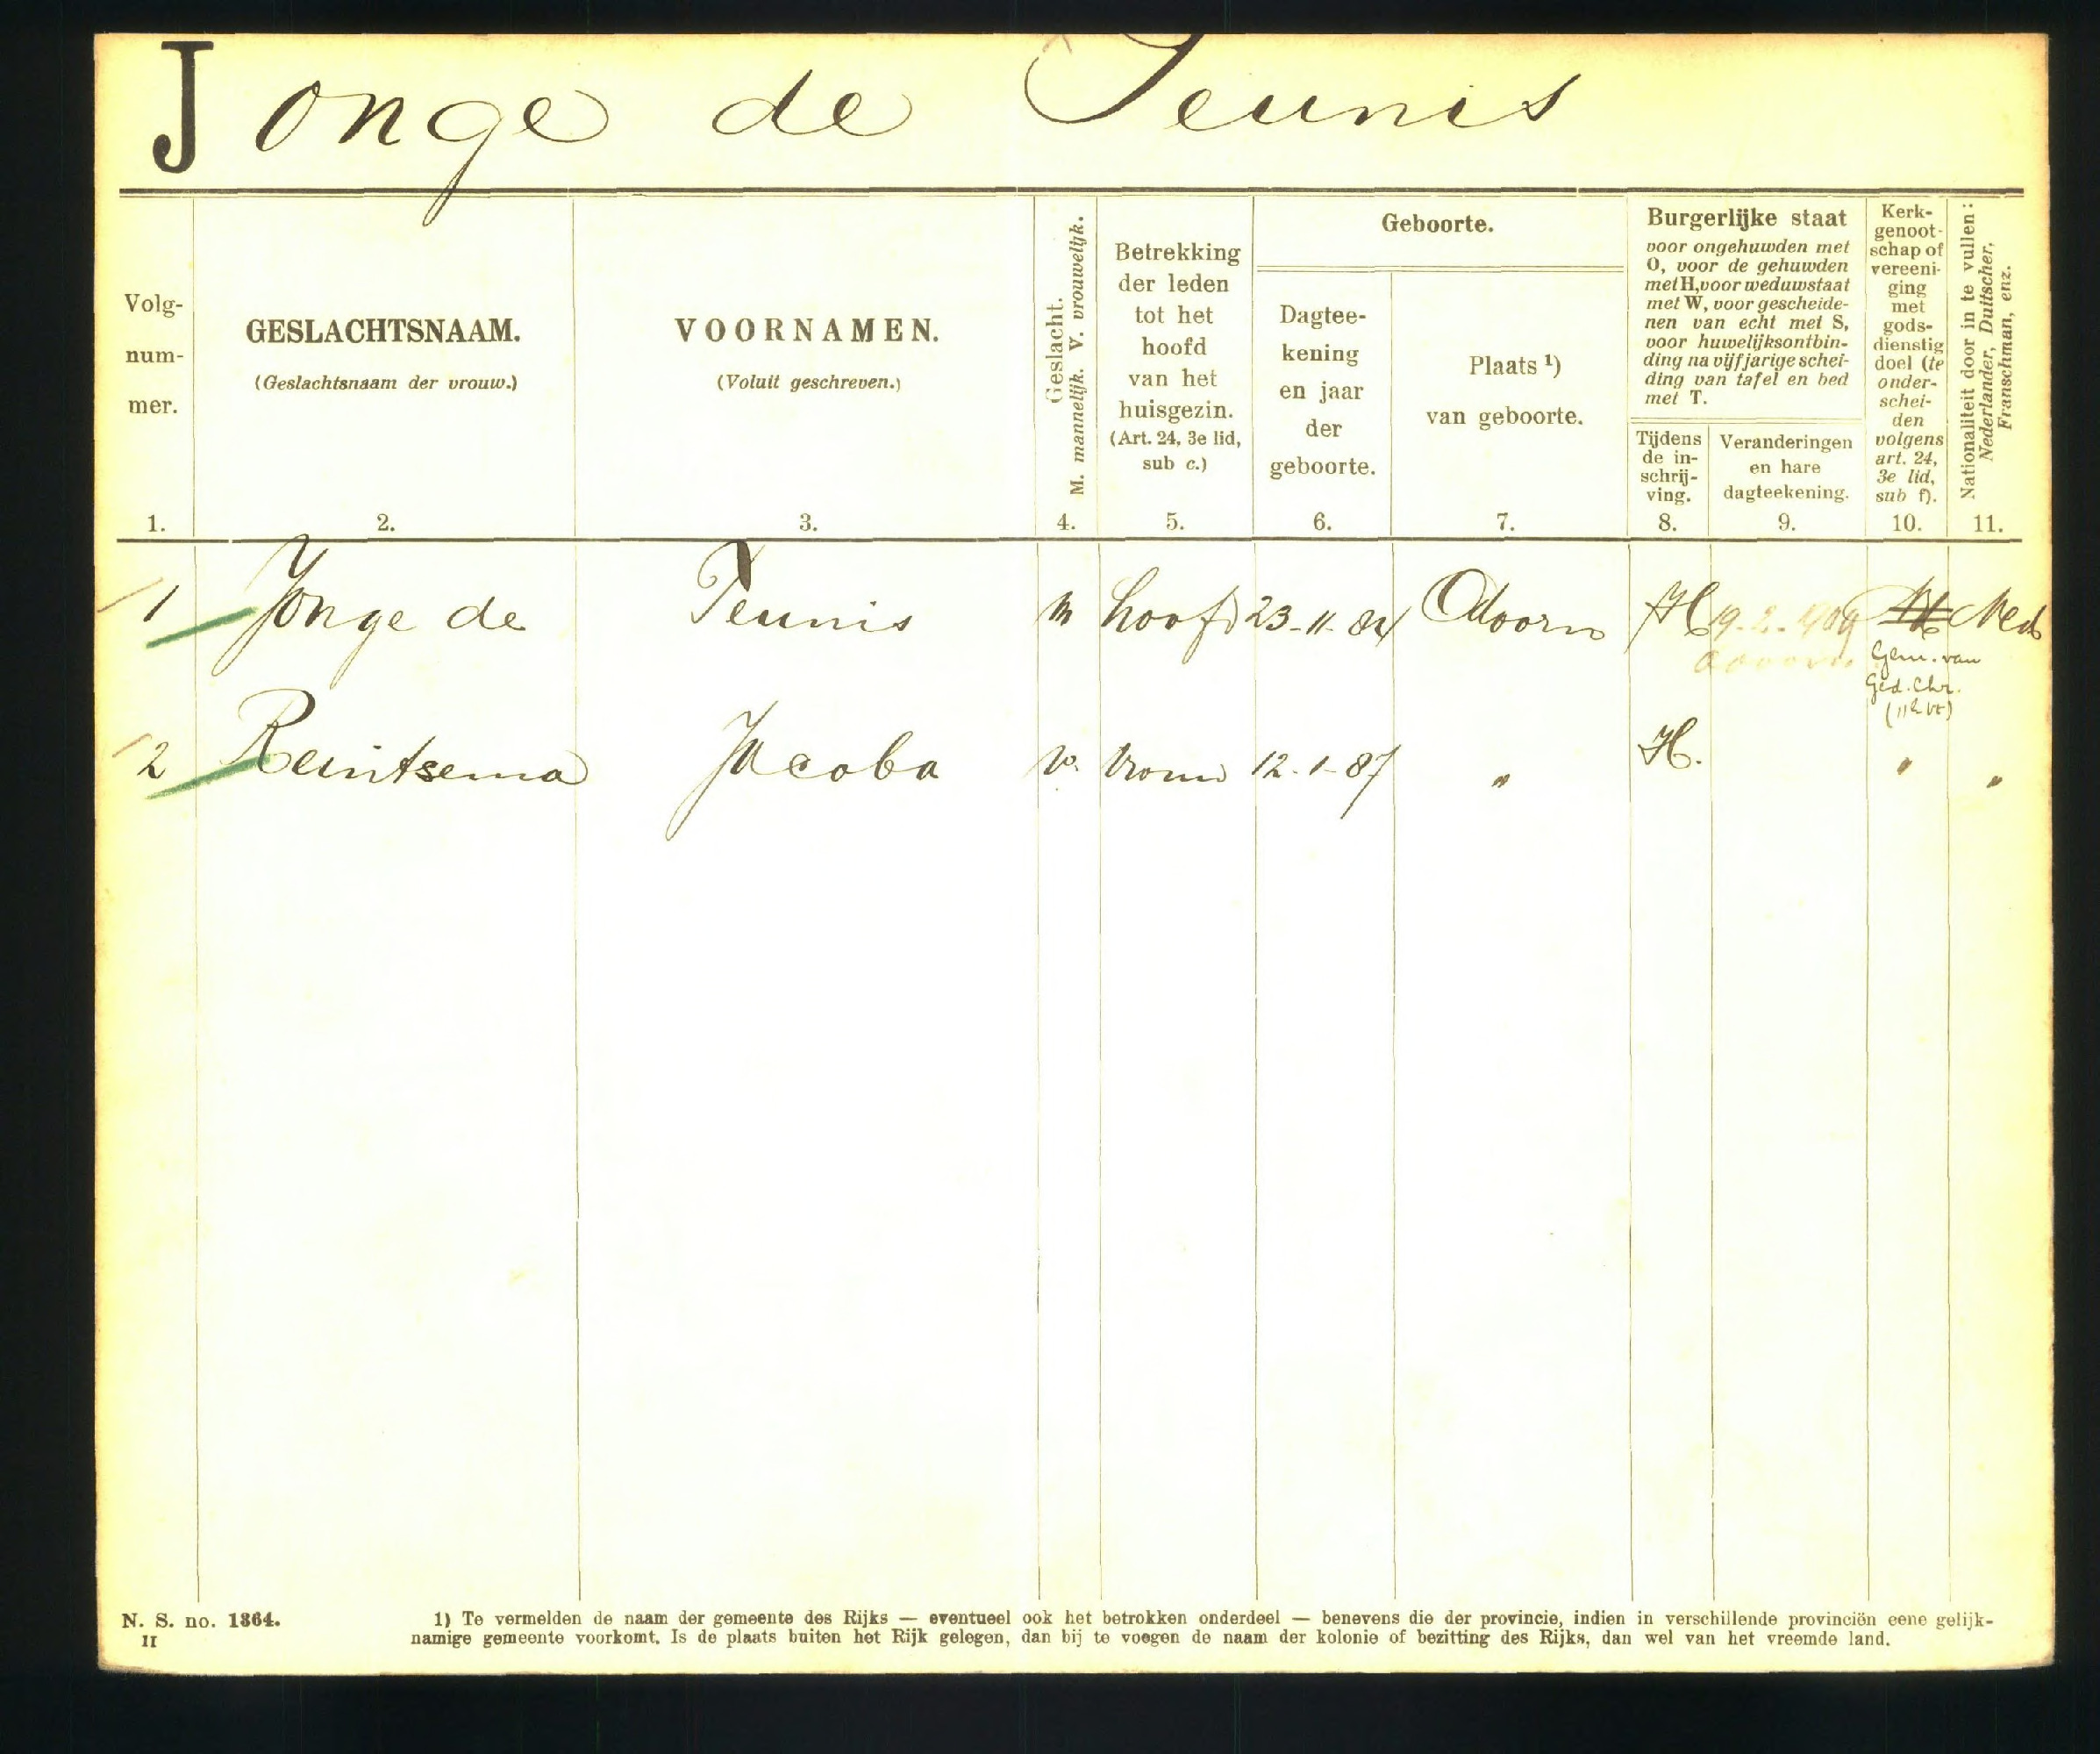 Jonge de Teunis
Volg-
num-
mer.
1.
GESLACHTSNAAM.
(Geslachtsnaam der vrouw.)
2.
VOORNAMEN.
(Voluit geschreven.)
3.
Geslacht.
M. mannelijk. V. vrouwelijk.
4.
Betrekking
der leden
tot het
hoofd
van het
huisgezin.
(Art. 24, 3e lid,
sub c.)
5.
Geboorte.
Dagtee-
kening
en jaar
der
geboorte.
6.
Plaats ¹)
van geboorte.
7.
Burgerlijke staat
voor ongehuwden met
O, voor de gehuwden
met H, voor weduwstaat
met W, voor gescheide-
nen van echt met S,
voor huwelijksontbin-
ding na vijfjarige schei-
ding van tafel en bed
met T.
Tijdens
de in-
schrij-
ving.
8.
Veranderingen
en hare
dagteekening.
9.
Kerk-
genoot-
schap of
vereeni-
ging
met
gods-
dienstig
doel (te
onder-
schei-
den
volgens
art. 24,
3e lid,
sub f).
10.
Nationaliteit door in te vullen:
Nederlander, Duitscher,
Franschman, enz.
11.
1 Jonge de Teunis m hoofd 23-11-84 Odoorn H 19-2-1909 NH Ned
Odoorn.
Gem. van
Ged. Chr.
2 Reintsema Jacoba v. vrouw 12-1-87 " H. " "
N. S. no. 1364.
II
1) Te vermelden de naam der gemeente des Rijks — eventueel ook het betrokken onderdeel — benevens die der provincie, indien in verschillende provinciën eene gelijk-
namige gemeente voorkomt. Is de plaats buiten het Rijk gelegen, dan bij te voegen de naam der kolonie of bezitting des Rijks, dan wel van het vreemde land.